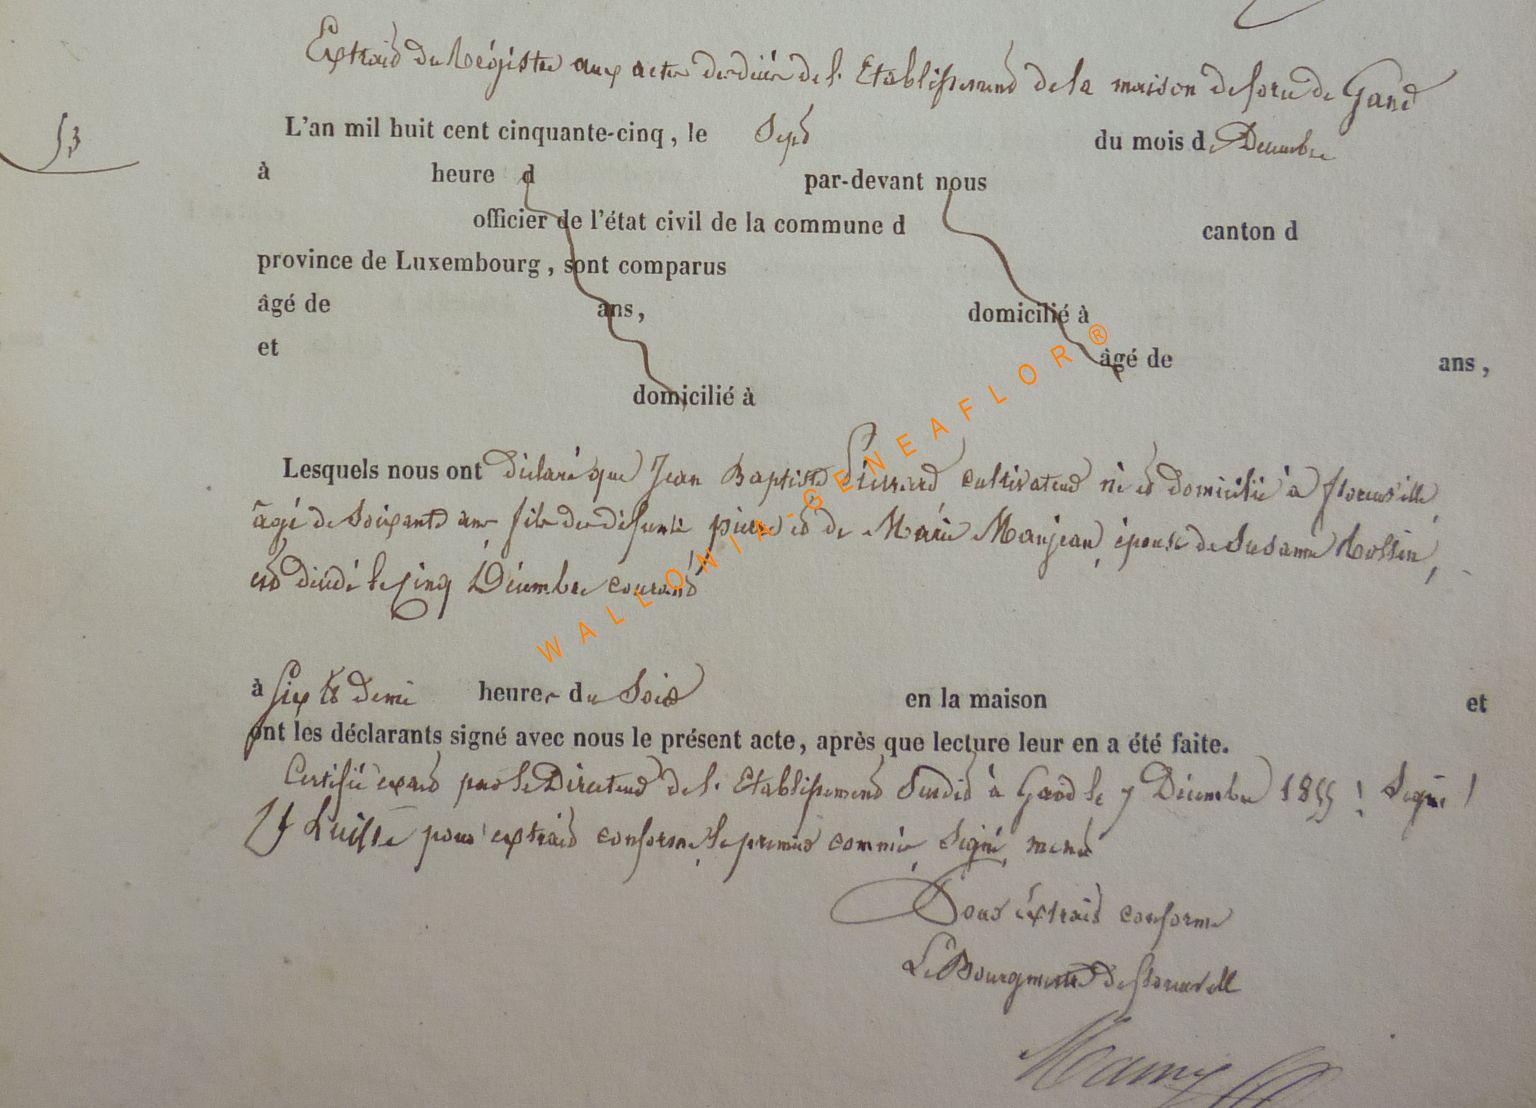 Extrait du Régistre aux actes de décès de l'Etablissement de la maison de force de Gand
53
L'an mil huit cent cinquante-cinq, le Sept du mois de Décembre
à heure d par-devant nous
officier de l'état civil de la commune d canton d
province de Luxembourg, sont comparus
âgé de ans, domicilié à
et âgé de ans,
domicilié à
Lesquels nous ont déclaré que Jean Baptiste cultivateur né et domicilié à florenville,
âgé de Soixante ans fils des défunts pierre et de Marie Manjean, épouse de Susanne Rossin,
est décédé le Cinq Décembre courant
à Six & demi heures du Soir en la maison et
ont les déclarants signé avec nous le présent acte, après que lecture leur en a été faite.
Certifié exact par le Directeur de l'Etablissement Susdit à Gand le 7 Décembre 1855! Signé!
pour extrait conforme, le premier commis, signé,
Pour extrait conforme
Le Bourgmestre de florenville
WALLONIA-GENEAFLOR®